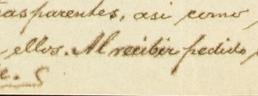 asparentes, asi como
ellos. Al recibir pedido
e.